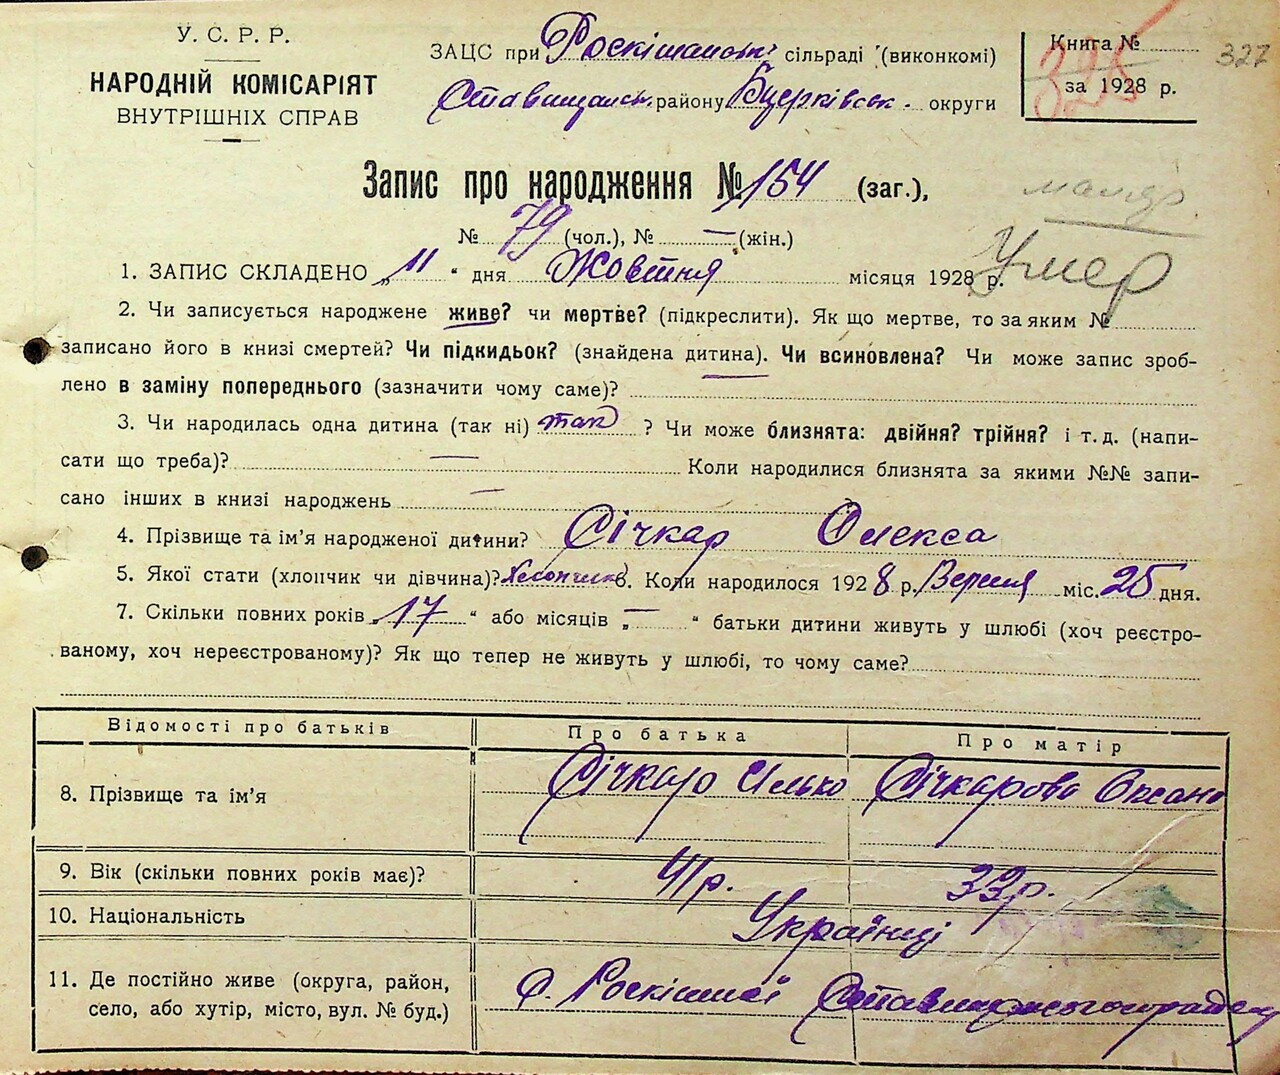 У. С. Р. Р.
НАРОДНІЙ КОМІСАРІЯТ
ВНУТРІШНІХ СПРАВ
ЗАЦС при Роскішанськ. сільраді (виконкомі)
Ставищанськ. району Бцерківськ. округи
Книга №
за 1928 р.
325
327
Запис про народження № 154 (заг.),
№ 79 (чол.), № — (жін.)
Умер
1. ЗАПИС СКЛАДЕНО „11“ дня Жовтня місяця 1928 р.
2. Чи записується народжене живе? чи мертве? (підкреслити). Як що мертве, то за яким №
записано його в книзі смертей? Чи підкидьок? (знайдена дитина). Чи всиновлена? Чи може запис зроб-
лено в заміну попереднього (зазначити чому саме)? —
3. Чи народилась одна дитина (так ні) так ? Чи може близнята: двійня? трійня? і т. д. (напи-
сати що треба)? — Коли народилися близнята за якими №№ запи-
сано інших в книзі народжень —
4. Прізвище та ім'я народженої дитини? Січкар Олекса
5. Якої стати (хлопчик чи дівчина)? Хлопчик 6. Коли народилося 1928 р. Вересня міс. 25 дня.
7. Скільки повних років „17“ або місяців „—“ батьки дитини живуть у шлюбі (хоч реєстро-
ваному, хоч нереєстрованому)? Як що тепер не живуть у шлюбі, то чому саме?
Відомості про батьків Про батька Про матір
8. Прізвище та ім'я Січкарь Ілько Січкарова Оксана
9. Вік (скільки повних років має)? 41 р. 33 р.
10. Національність Українці
11. Де постійно живе (округа, район,
село, або хутір, місто, вул. № буд.)
с. Роскішної Ставищанського району